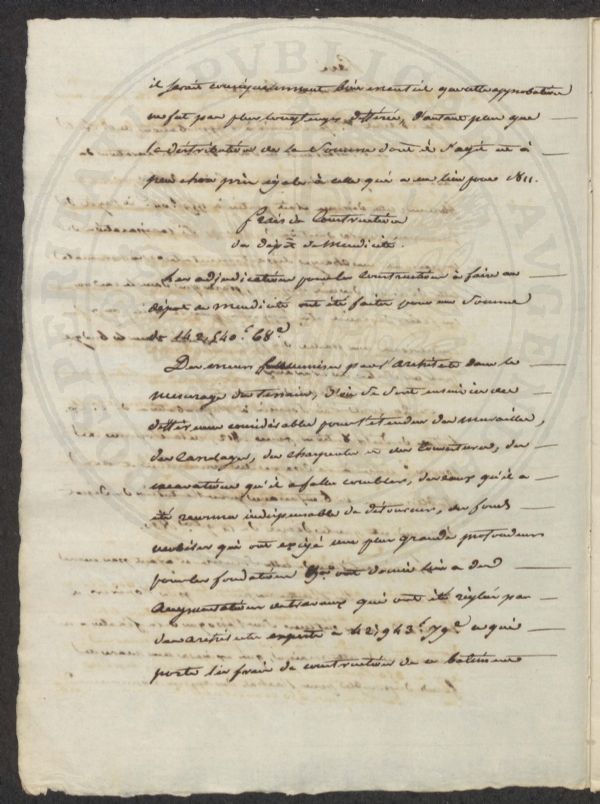 il serait conséquemment bien essentiel que cette approbation
ne fut pas plus longtemps différée, d'autant plus que
la distribution de la somme dont il s'agit est à
peu chose près égale à celle qui a eu lieu pour 1811.
frais de Construction
du dépôt de Mendicité.
Les adjudications pour les constructions à faire au
dépôt de Mendicité ont été faites pour une somme
de 142,540.f 68.c
Des erreurs commises par l'architecte dans le
mesurage du terrain, d'où se sont ensuivies des
différences considérables pour l'étendue des murailles,
des carelages, des charpentes et des couvertures, des
excavations qu'il a fallu combler, des eaux qu'il a
été reconnu indispensable de détourner, des fonds
qui ont exigé une plus grande profondeur
pour les fondations ont donné lieu à des
augmentations de travaux qui ont été réglées par
des experts à 42,943.f 79.c ce qui
porte les frais de construction de ce bâtiment